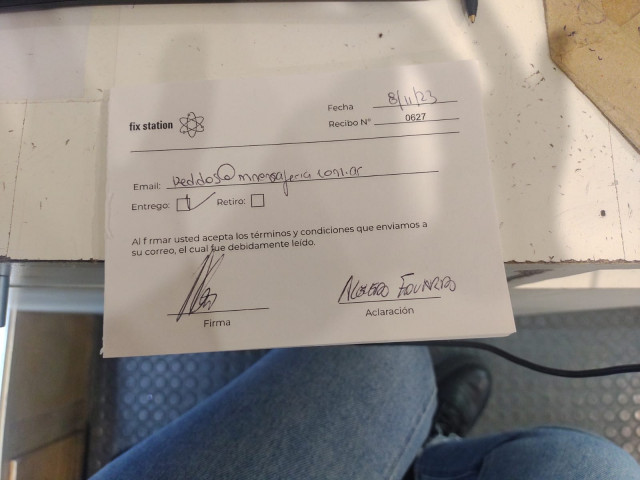 fix station
Fecha 8/11/23
Recibo N° 0627
Email: pedidos@mmensajeria.com.ar
Entrego: Retiro:
Al f rmar usted acepta los términos y condiciones que enviamos a
su correo, el cual fue debidamente leído.
Firma
Aclaración